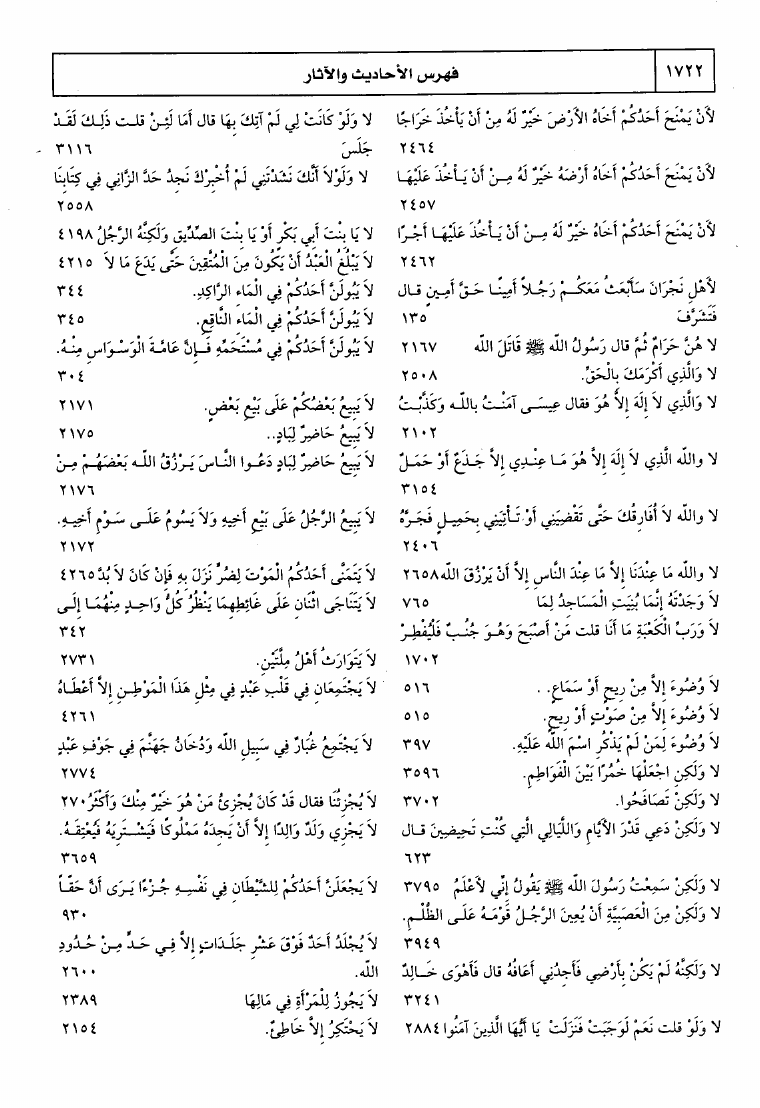 ١٧٢٢
فهرس الأحاديث والآثار
لأَنْ يَمْنَحَ أَحَدُكُمْ أَخَاهُ الأَرْضَ خَيْرٌ لَهُ مِنْ أَنْ يَأْخُذَ خَرَاجًا
٢٤٦٤
لأَنْ يَمْنَحَ أَحَدُكُمْ أَخَاهُ أَرْضَهُ خَيْرٌ لَهُ مِنْ أَنْ يَأْخُذَ عَلَيْهَا
٢٤٥٧
لأَنْ يَمْنَحَ أَحَدُكُمْ أَخَاهُ خَيْرٌ لَهُ مِنْ أَنْ يَأْخُذَ عَلَيْهَا أَجْرًا
٢٤٦٢
لأَهْلِ نَجْرَانَ سَأَبْعَثُ مَعَكُمْ رَجُلاً أَمِينًا حَقَّ أَمِينٍ قال
فَتَشَرَّفَ ١٣٥
لا هُنَّ حَرَامٌ ثُمَّ قال رَسُولُ اللّه ﷺ قَاتَلَ اللّه ٢١٦٧
لا وَالَّذِي أَكْرَمَكَ بِالْحَقِّ. ٢٥٠٨
لا وَالَّذِي لاَ إِلَهَ إِلاَّ هُوَ فقال عِيسَى آمَنْتُ باللّه وَكَذَّبْتُ
٢١٠٢
لا واللّه الَّذِي لاَ إِلَهَ إِلاَّ هُوَ مَا عِنْدِي إِلاَّ جَذَعٌ أَوْ حَمَلٌ
٣١٥٤
لا واللّه لاَ أُفَارِقُكَ حَتَّى تَقْضِيَنِي أَوْ تَأْتِيَنِي بِحَمِيلٍ فَجَرَّهُ
٢٤٠٦
لا واللّه مَا عِنْدَنَا إِلاَّ مَا عِنْدَ النَّاسِ إِلاَّ أَنْ يَرْزُقَ اللّه ٢٦٥٨
لاَ وَجَدْتَهُ إِنَّمَا بُنِيَتِ الْمَسَاجِدُ لِمَا ٧٦٥
لاَ وَرَبِّ الْكَعْبَةِ مَا أَنَا قلت مَنْ أَصْبَحَ وَهُوَ جُنُبٌ فَلْيُفْطِرْ
١٧٠٢
لاَ وُضُوءَ إِلاَّ مِنْ رِيحٍ أَوْ سَمَاعٍ. . ٥١٦
لاَ وُضُوءَ إِلاَّ مِنْ صَوْتٍ أَوْ رِيحٍ. ٥١٥
لاَ وُضُوءَ لِمَنْ لَمْ يَذْكُرِ اسْمَ اللَّه عَلَيْهِ. ٣٩٧
لا وَلَكِنِ اجْعَلْهَا خُمُرًا بَيْنَ الْفَوَاطِمِ. ٣٥٩٦
لا وَلَكِنْ تَصَافَحُوا. ٣٧٠٢
لا وَلَكِنْ دَعِي قَدْرَ الأَيَّامِ وَاللَّيَالِي الَّتِي كُنْتِ تَحِيضِينَ قال
٦٢٣
لا وَلَكِنْ سَمِعْتُ رَسُولَ اللّه ﷺ يَقُولُ إِنِّي لأَعْلَمُ ٣٧٩٥
لا وَلَكِنْ مِنَ الْعَصَبِيَّةِ أَنْ يُعِينَ الرَّجُلُ قَوْمَهُ عَلَى الظُّلْمِ.
٣٩٤٩
لا وَلَكِنَّهُ لَمْ يَكُنْ بِأَرْضِي فَأَجِدُنِي أَعَافُهُ قال فَأَهْوَى خَالِدٌ
٣٢٤١
لا وَلَوْ قلت نَعَمْ لَوَجَبَتْ فَنَزَلَتْ يَا أَيُّهَا الَّذِينَ آمَنُوا ٢٨٨٤
لا وَلَوْ كَانَتْ لِي لَمْ آتِكَ بِهَا قال أَمَا لَئِنْ قلت ذَلِكَ لَقَدْ
جَلَسَ ٣١١٦
لا وَلَوْلاَ أَنَّكَ نَشَدْتَنِي لَمْ أُخْبِرْكَ نَجِدُ حَدَّ الزَّانِي فِي كِتَابِنَا
٢٥٥٨
لا يَا بِنْتَ أَبِي بَكْرٍ أَوْ يَا بِنْتَ الصِّدِّيقِ وَلَكِنَّهُ الرَّجُلُ ٤١٩٨
لاَ يَبْلُغُ الْعَبْدُ أَنْ يَكُونَ مِنَ الْمُتَّقِينَ حَتَّى يَدَعَ مَا لاَ ٤٢١٥
لاَ يَبُولَنَّ أَحَدُكُمْ فِي الْمَاءِ الرَّاكِدِ. ٣٤٤
لاَ يَبُولَنَّ أَحَدُكُمْ فِي الْمَاءِ النَّاقِعِ. ٣٤٥
لاَ يَبُولَنَّ أَحَدُكُمْ فِي مُسْتَحَمِّهِ فَإِنَّ عَامَّةَ الْوَسْوَاسِ مِنْهُ.
٣٠٤
لاَ يَبِيعُ بَعْضُكُمْ عَلَى بَيْعِ بَعْضٍ. ٢١٧١
لاَ يَبِيعُ حَاضِرٌ لِبَادٍ.. ٢١٧٥
لاَ يَبِيعُ حَاضِرٌ لِبَادٍ دَعُوا النَّاسَ يَرْزُقُ اللّه بَعْضَهُمْ مِنْ
٢١٧٦
لاَ يَبِيعُ الرَّجُلُ عَلَى بَيْعِ أَخِيهِ وَلاَ يَسُومُ عَلَى سَوْمِ أَخِيهِ.
٢١٧٢
لاَ يَتَمَنَّى أَحَدُكُمُ الْمَوْتَ لِضُرٍّ نَزَلَ بِهِ فَإِنْ كَانَ لاَ بُدَّ ٤٢٦٥
لاَ يَتَنَاجَى اثْنَانِ عَلَى غَائِطِهِمَا يَنْظُرُ كُلُّ وَاحِدٍ مِنْهُمَا إِلَى
٣٤٢
لاَ يَتَوَارَثُ أَهْلُ مِلَّتَيْنِ. ٢٧٣١
لاَ يَجْتَمِعَانِ فِي قَلْبِ عَبْدٍ فِي مِثْلِ هَذَا الْمَوْطِنِ إِلاَّ أَعْطَاهُ
٤٢٦١
لاَ يَجْتَمِعُ غُبَارٌ فِي سَبِيلِ اللّه وَدُخَانُ جَهَنَّمَ فِي جَوْفِ عَبْدٍ
٢٧٧٤
لاَ يُجْزِئُنَا فقال قَدْ كَانَ يُجْزِئُ مَنْ هُوَ خَيْرٌ مِنْكَ وَأَكْثَرُ ٢٧٠
لاَ يَجْزِي وَلَدٌ وَالِدًا إِلاَّ أَنْ يَجِدَهُ مَمْلُوكًا فَيَشْتَرِيَهُ فَيُعْتِقَهُ.
٣٦٥٩
لاَ يَجْعَلَنَّ أَحَدُكُمْ لِلشَّيْطَانِ فِي نَفْسِهِ جُزْءًا يَرَى أَنَّ حَقًّا
٩٣٠
لاَ يُجْلَدُ أَحَدٌ فَوْقَ عَشْرِ جَلَدَاتٍ إِلاَّ فِي حَدٍّ مِنْ حُدُودِ
اللّه. ٢٦٠٠
لاَ يَجُوزُ لِلْمَرْأَةِ فِي مَالِهَا ٢٣٨٩
لاَ يَحْتَكِرُ إِلاَّ خَاطِئٌ. ٢١٥٤